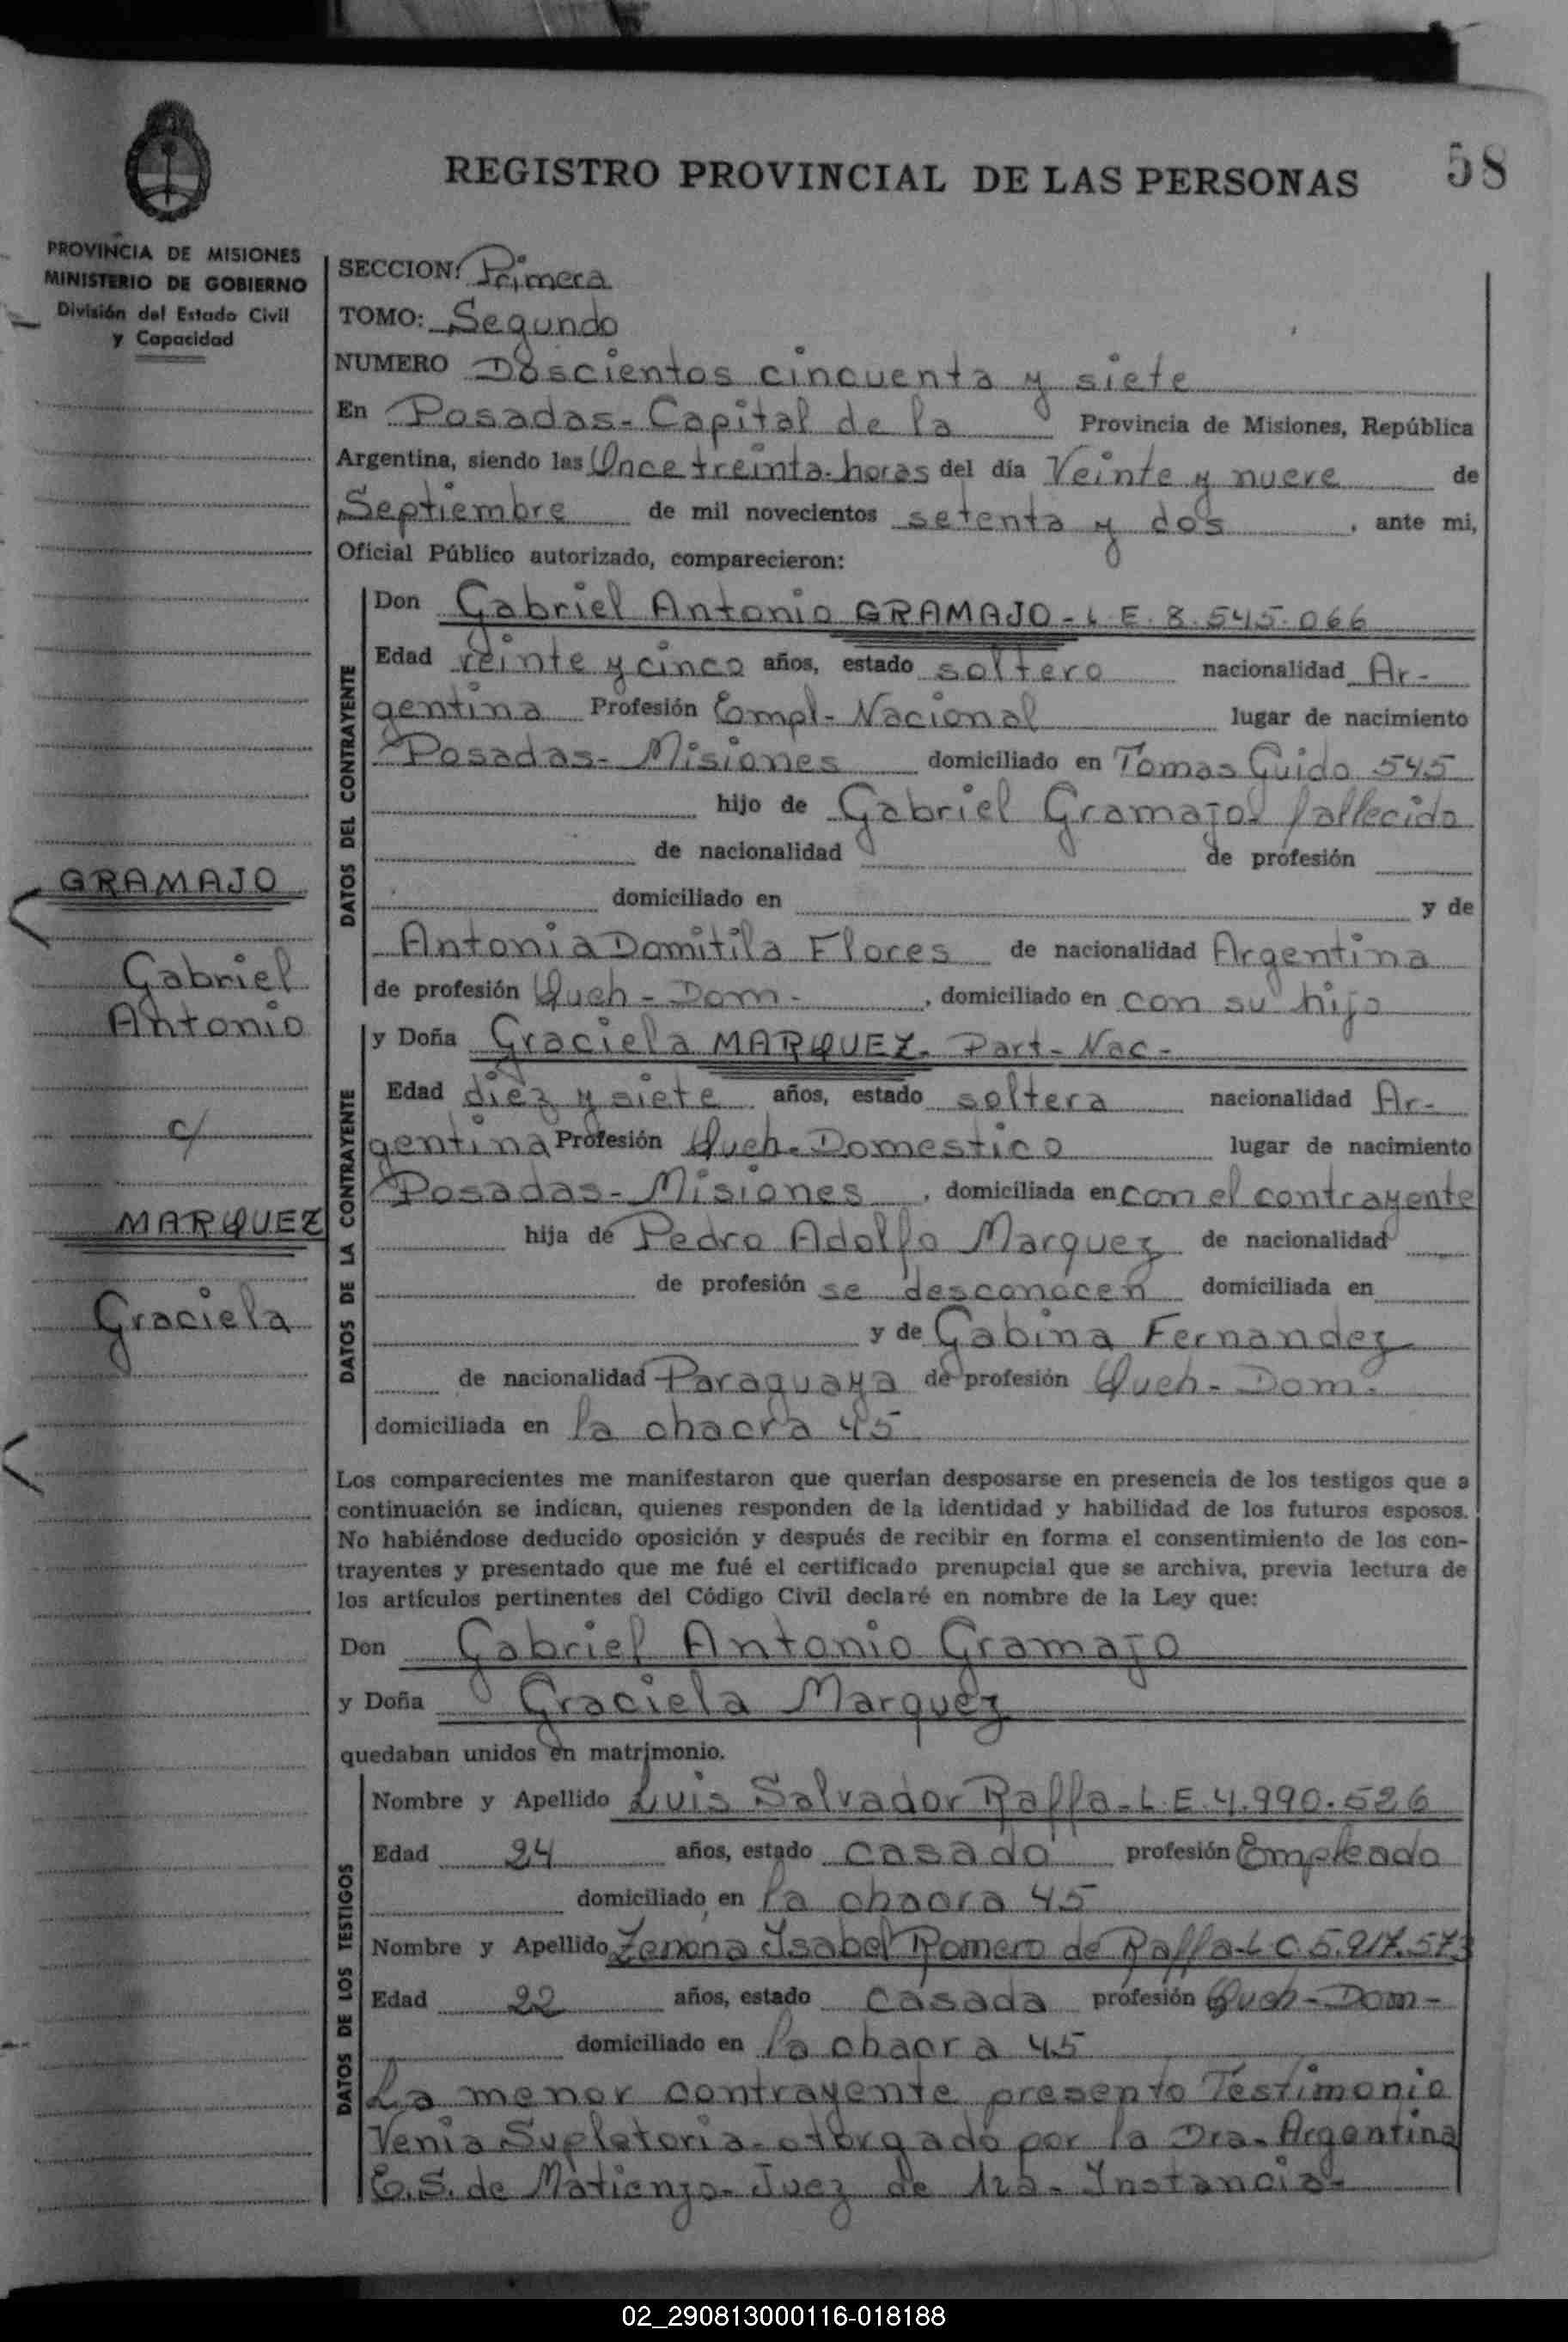 58
REGISTRO PROVINCIAL DE LAS PERSONAS
PROVINCIA DE MISIONES
MINISTERIO DE GOBIERNO
División del Estado Civil
y Capacidad
GRAMAJO
Gabriel
Antonio
c/
MARQUEZ
Graciela
SECCION: Primera
TOMO: Segundo
NUMERO Doscientos cincuenta y siete
En Posadas - Capital de la Provincia de Misiones, República
Argentina, siendo las Once treinta horas del día Veinte y nueve de
Septiembre de mil novecientos setenta y dos, ante mi,
Oficial Público autorizado, comparecieron:
DATOS DEL CONTRAYENTE
Don Gabriel Antonio GRAMAJO - L.E. 8.545.066
Edad veinte y cinco años, estado soltero nacionalidad Ar-
gentina Profesión Empl - Nacional lugar de nacimiento
Posadas - Misiones domiciliado en Tomas Guido 545
hijo de Gabriel Gramajo fallecido
de nacionalidad de profesión
domiciliado en y de
Antonia Domitila Flores de nacionalidad Argentina
de profesión Queh - Dom -, domiciliado en con su hijo
DATOS DE LA CONTRAYENTE
y Doña Graciela MARQUEZ - Part - Nac -
Edad diez y siete años, estado soltera nacionalidad Ar-
gentina Profesión Queh - Domestico lugar de nacimiento
Posadas - Misiones, domiciliada en con el contrayente
hija de Pedro Adolfo Marquez de nacionalidad
de profesión se desconocen domiciliada en
y de Gabina Fernandez
de nacionalidad Paraguaya de profesión Queh - Dom -
domiciliada en la chacra 45
Los comparecientes me manifestaron que querían desposarse en presencia de los testigos que a
continuación se indican, quienes responden de la identidad y habilidad de los futuros esposos.
No habiéndose deducido oposición y después de recibir en forma el consentimiento de los con-
trayentes y presentado que me fué el certificado prenupcial que se archiva, previa lectura de
los artículos pertinentes del Código Civil declaré en nombre de la Ley que:
Don Gabriel Antonio Gramajo
y Doña Graciela Marquez
quedaban unidos en matrimonio.
DATOS DE LOS TESTIGOS
Nombre y Apellido Luis Salvador Raffa - L.E. 4.990.526
Edad 24 años, estado casado profesión Empleado
domiciliado en la chacra 45
Nombre y Apellido Zenona Isabel Romero de Raffa - L.C. 5.917.573
Edad 22 años, estado casada profesión Queh - Dom -
domiciliado en la chacra 45
La menor contrayente presento Testimonio
Venia Supletoria - otorgado por la Dra - Argentina
E.S. de Matienzo - Juez de 1ra - Instancia -
02_290813000116-018188